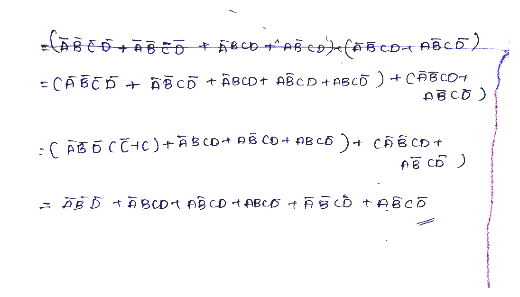 = (A̅ B̅ C̅ D̅ + A̅ B̅ C̅ D̅ + A̅ B C D + A B̅ C D) + (A̅ B̅ C D + A B̅ C D̅)
= (A̅ B̅ C̅ D̅ + A̅ B̅ C D̅ + A̅ B C D + A B̅ C D + A B C D̅) + (A̅ B̅ C D +
A B̅ C D̅)
= (A̅ B̅ D̅ (C̅ + C) + A̅ B C D + A B̅ C D + A B C D̅) + (A̅ B̅ C D +
A B̅ C D̅)
= A̅ B̅ D̅ + A̅ B C D + A B̅ C D + A B C D̅ + A̅ B̅ C D̅ + A B̅ C D̅